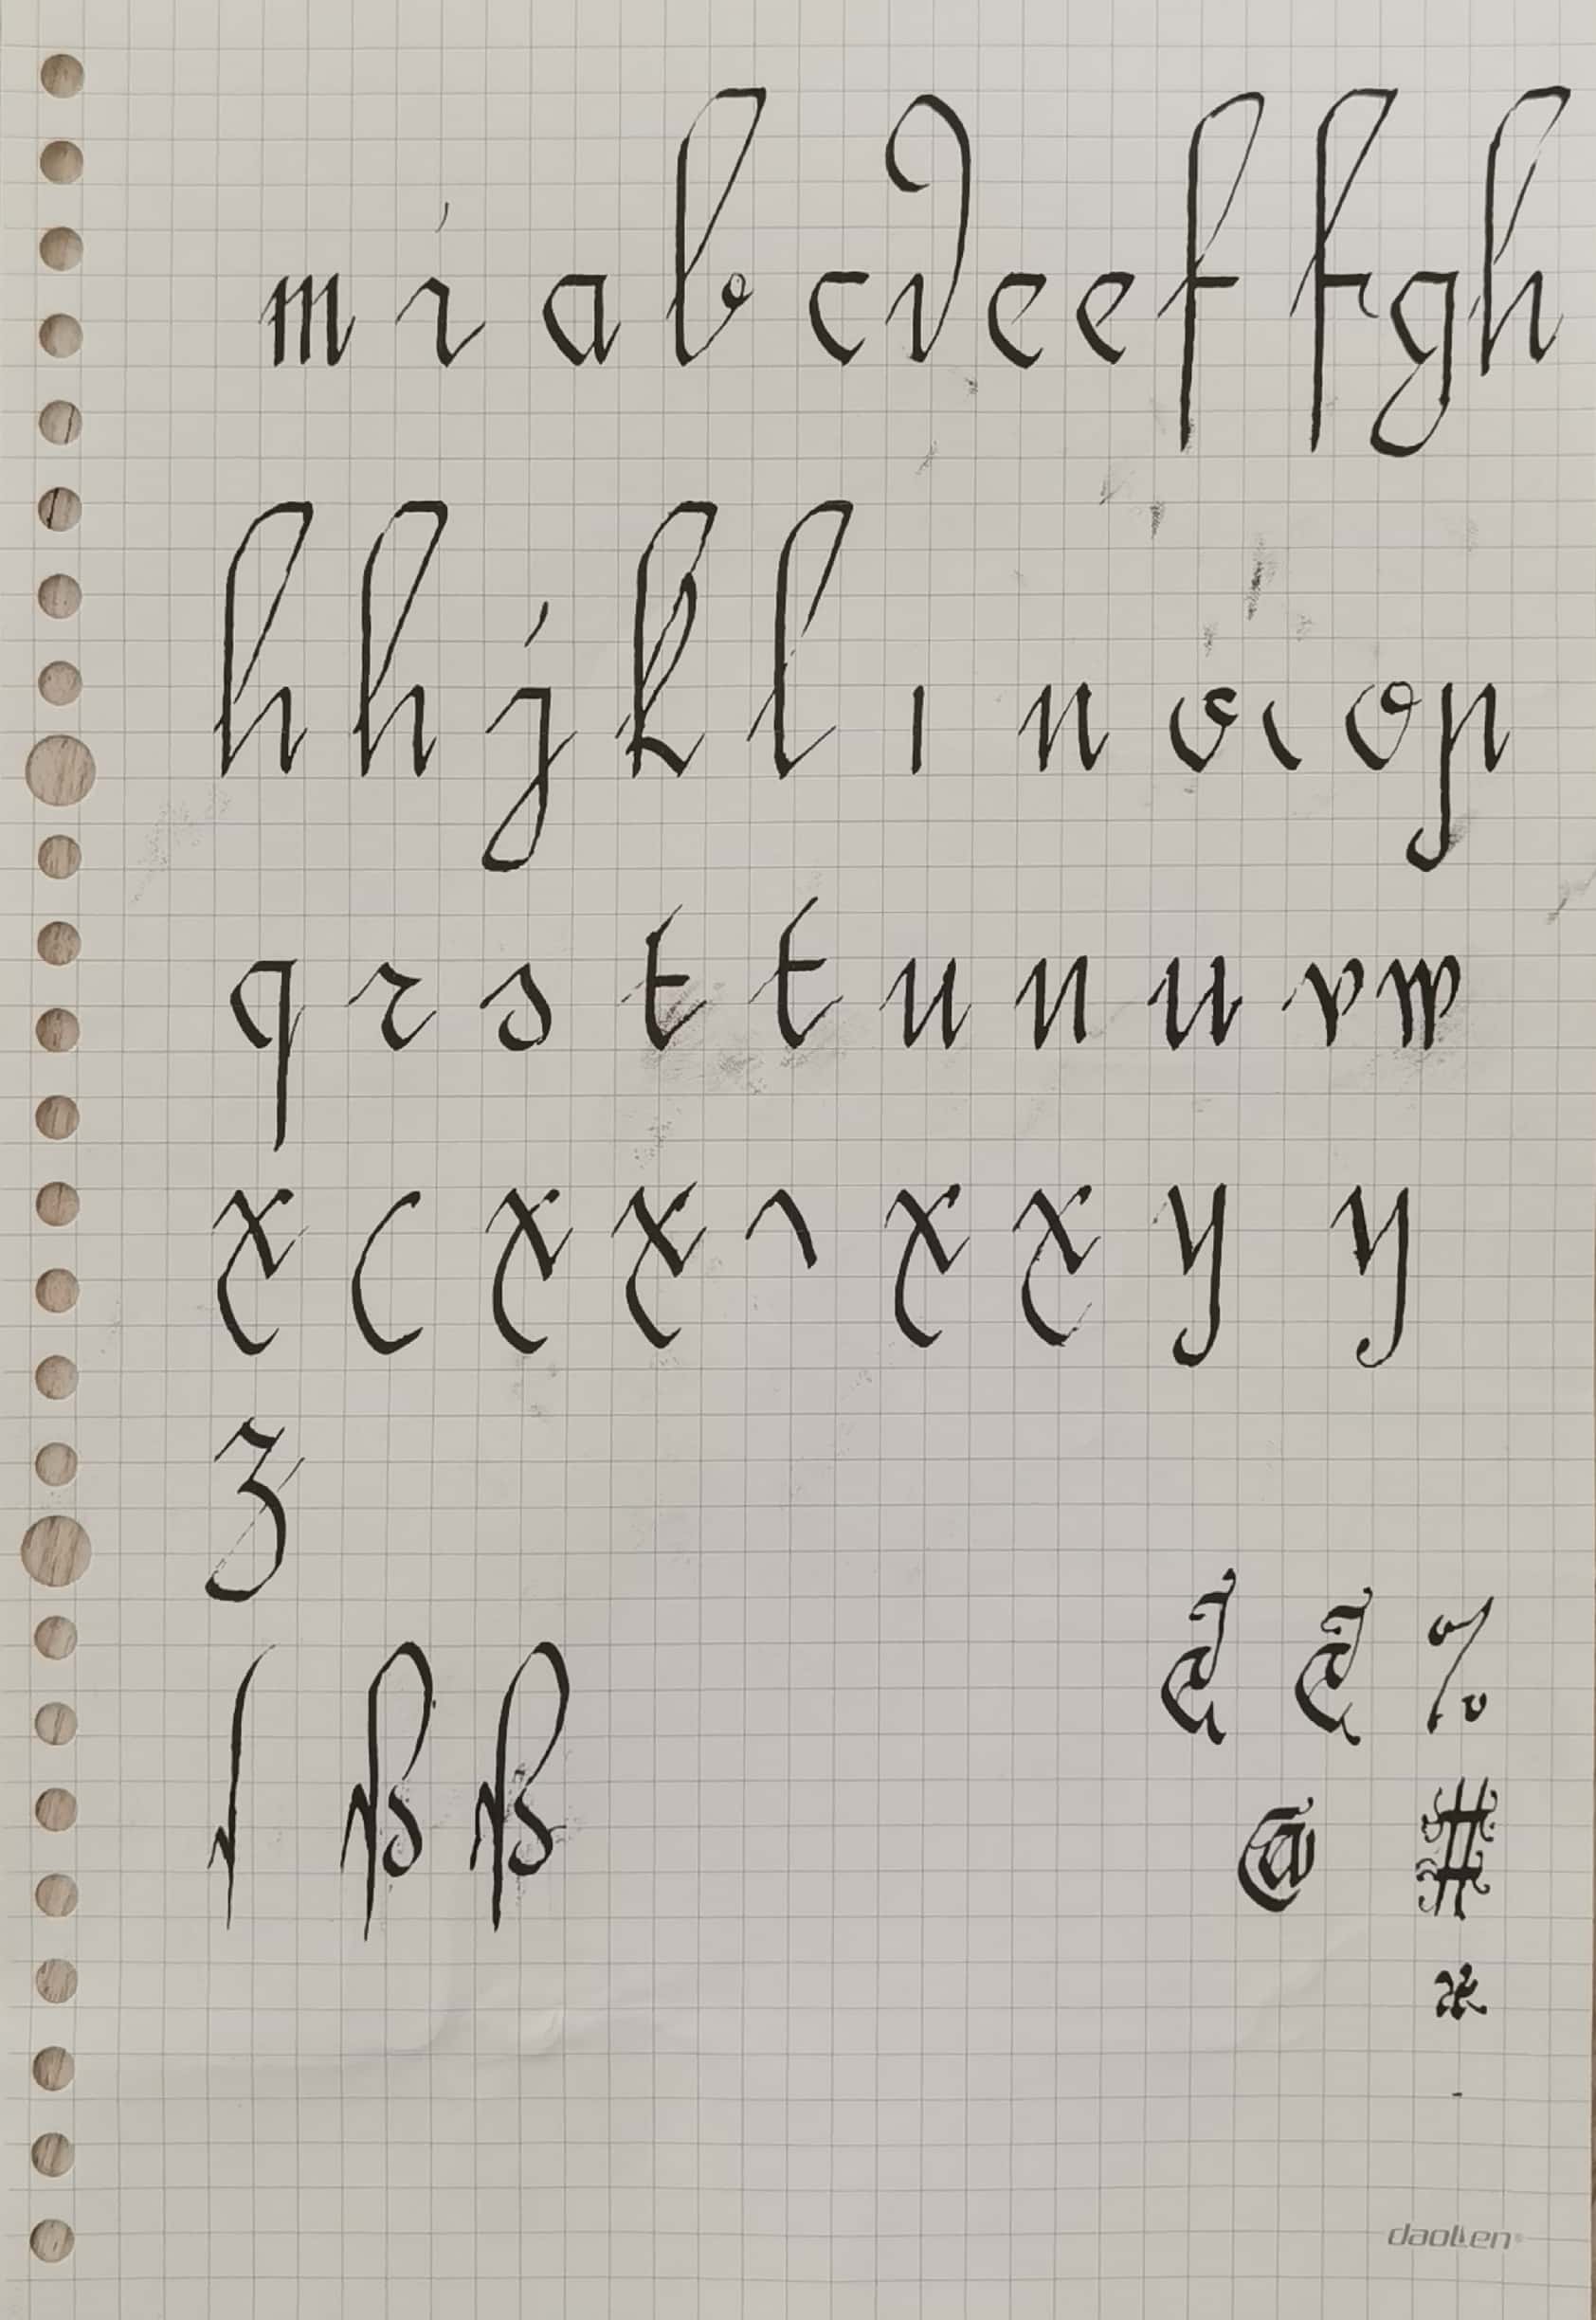 m i a b c d e e f f g h
h h j k l ı n o o p
q r s t t u n u v w
x x x x x y y
z
ſ ß ß
%
@ #
*
-
daolen